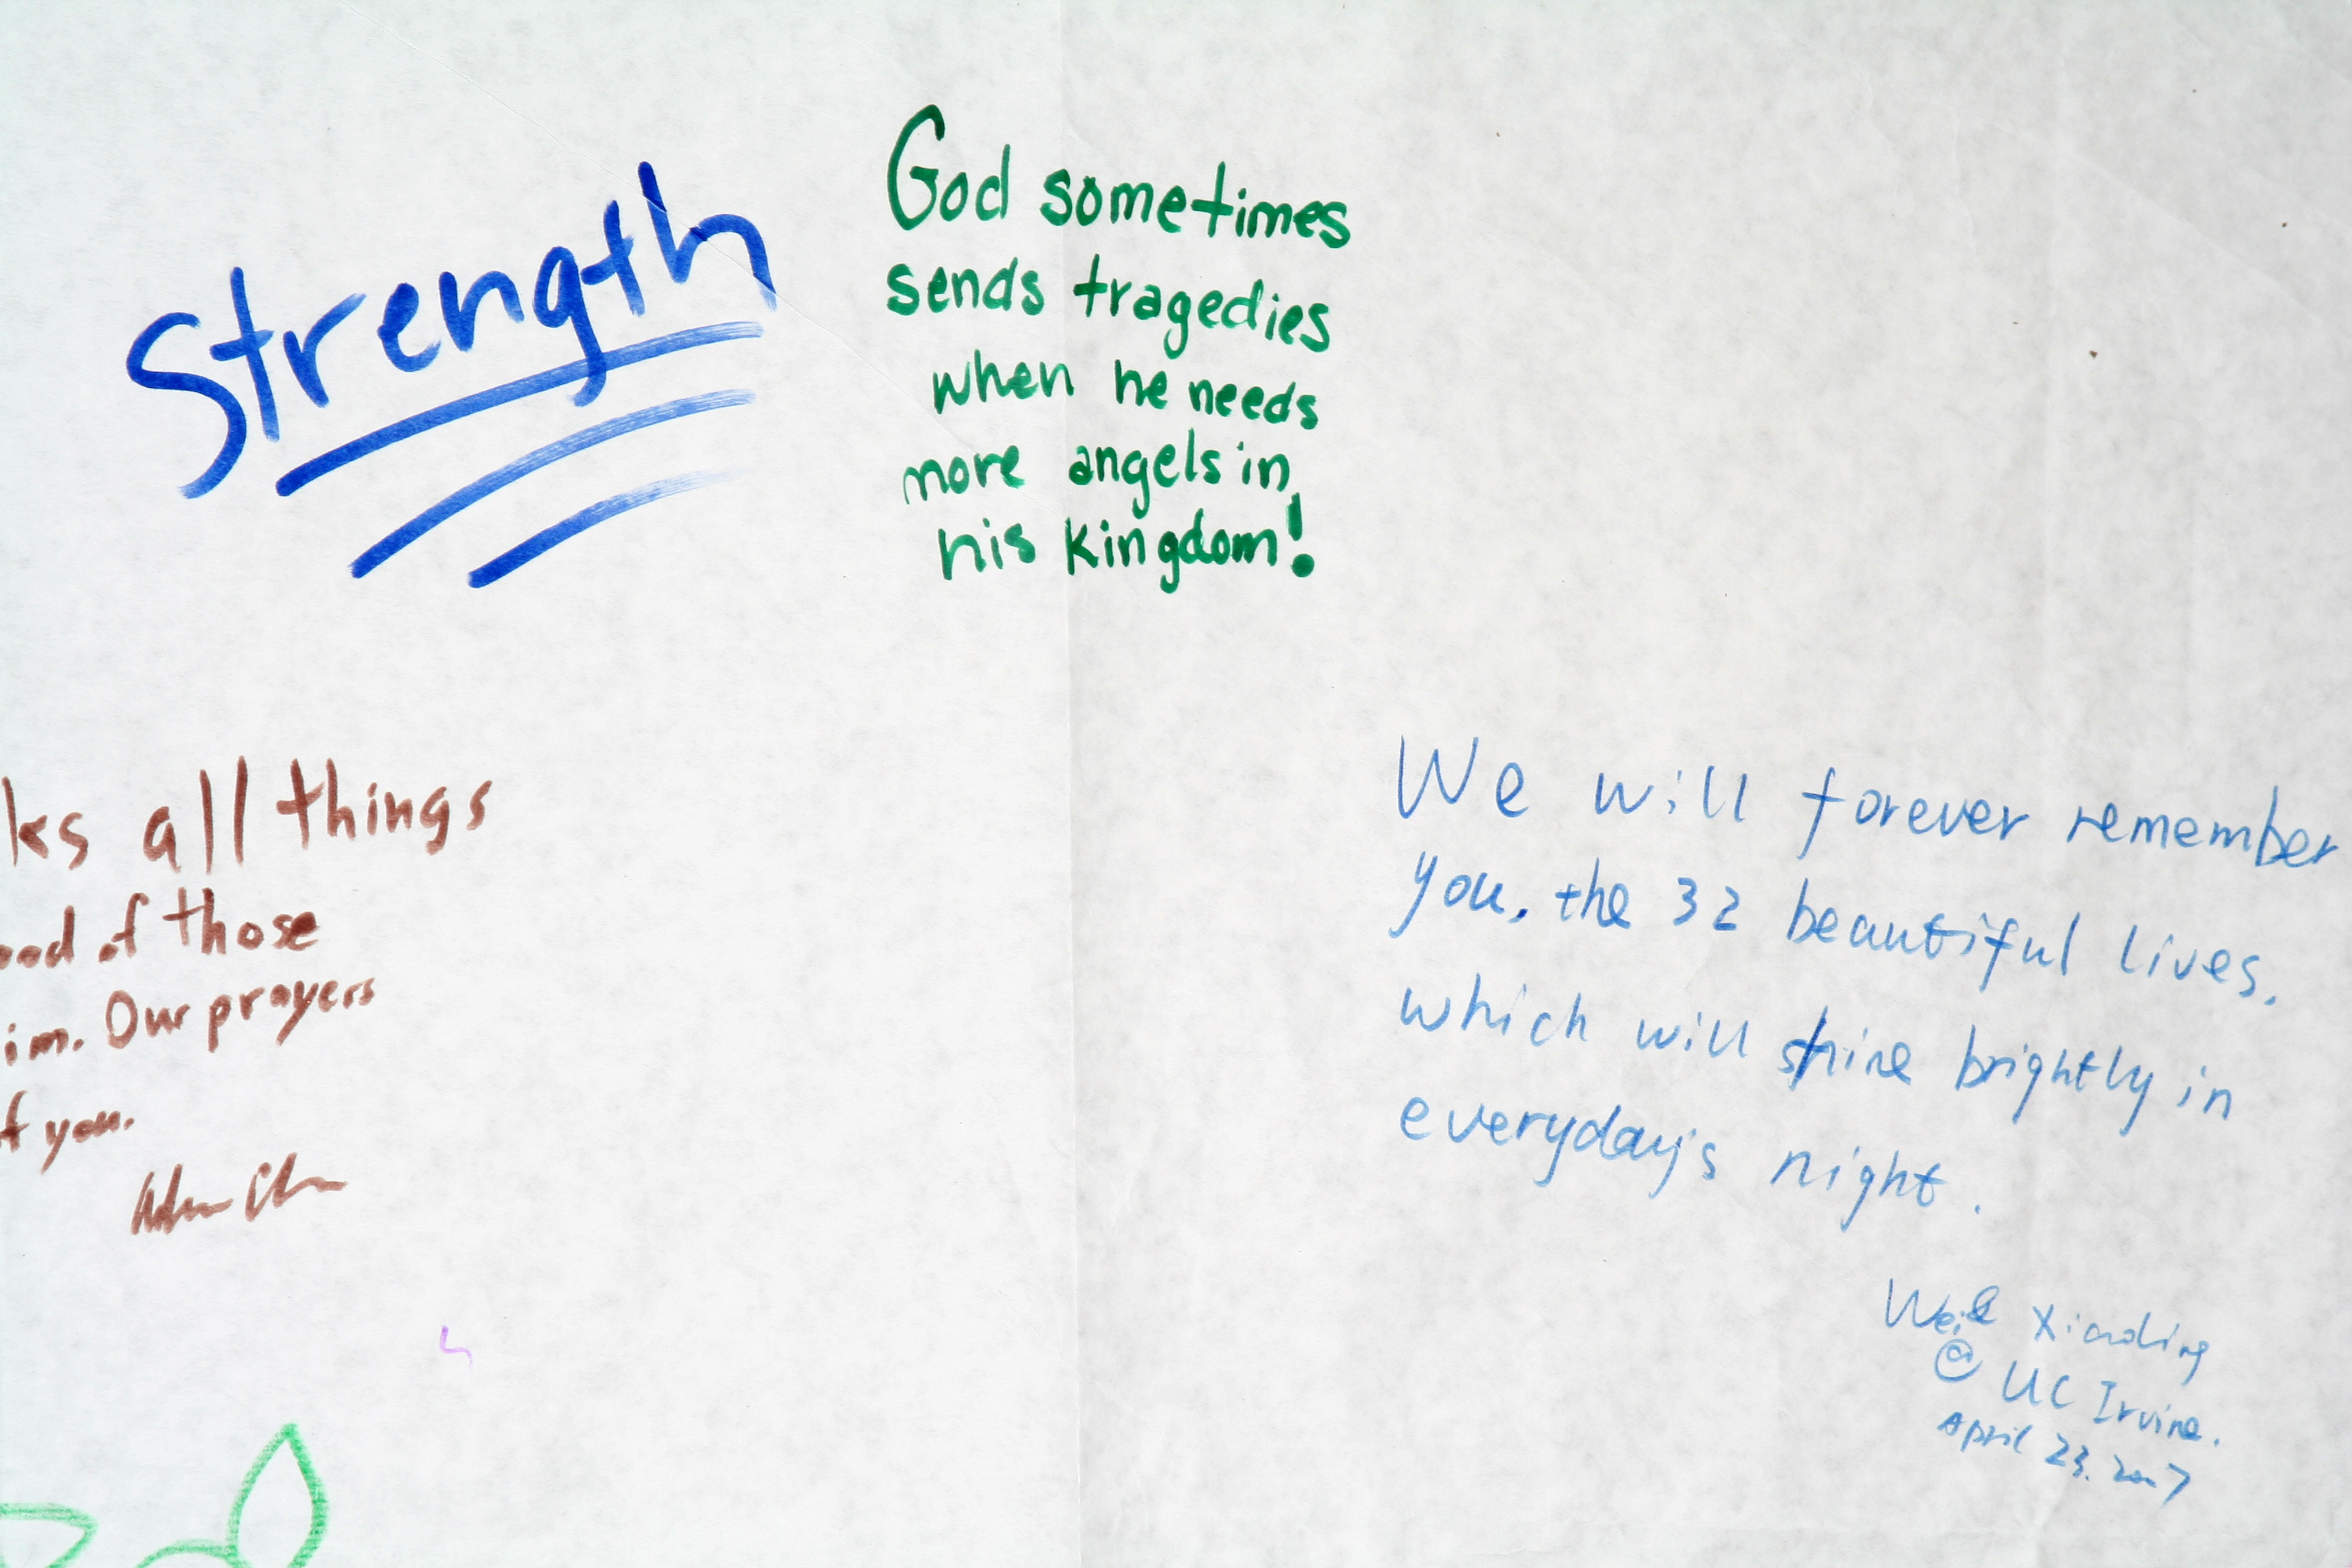 Strength
God sometimes
sends tragedies
when he needs
more angels in
his kingdom!
ks all things
ood of those
im. Our prayers
f you.
We will forever remember
you, the 32 beautiful lives,
which will shine brightly in
everyday's night.
Xiaoling
@ UC Irvine.
April 23. 2007